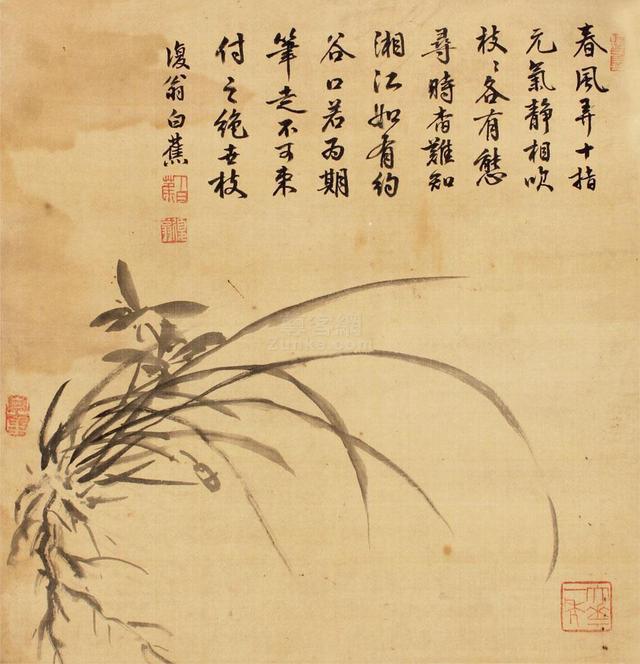 春風弄十指
元氣靜相吹
枝〻各有態
尋時杳難知
湘江如有約
谷口若为期
筆走不可束
付之絕世枝
復翁白蕉
尊客網
Zunke.com